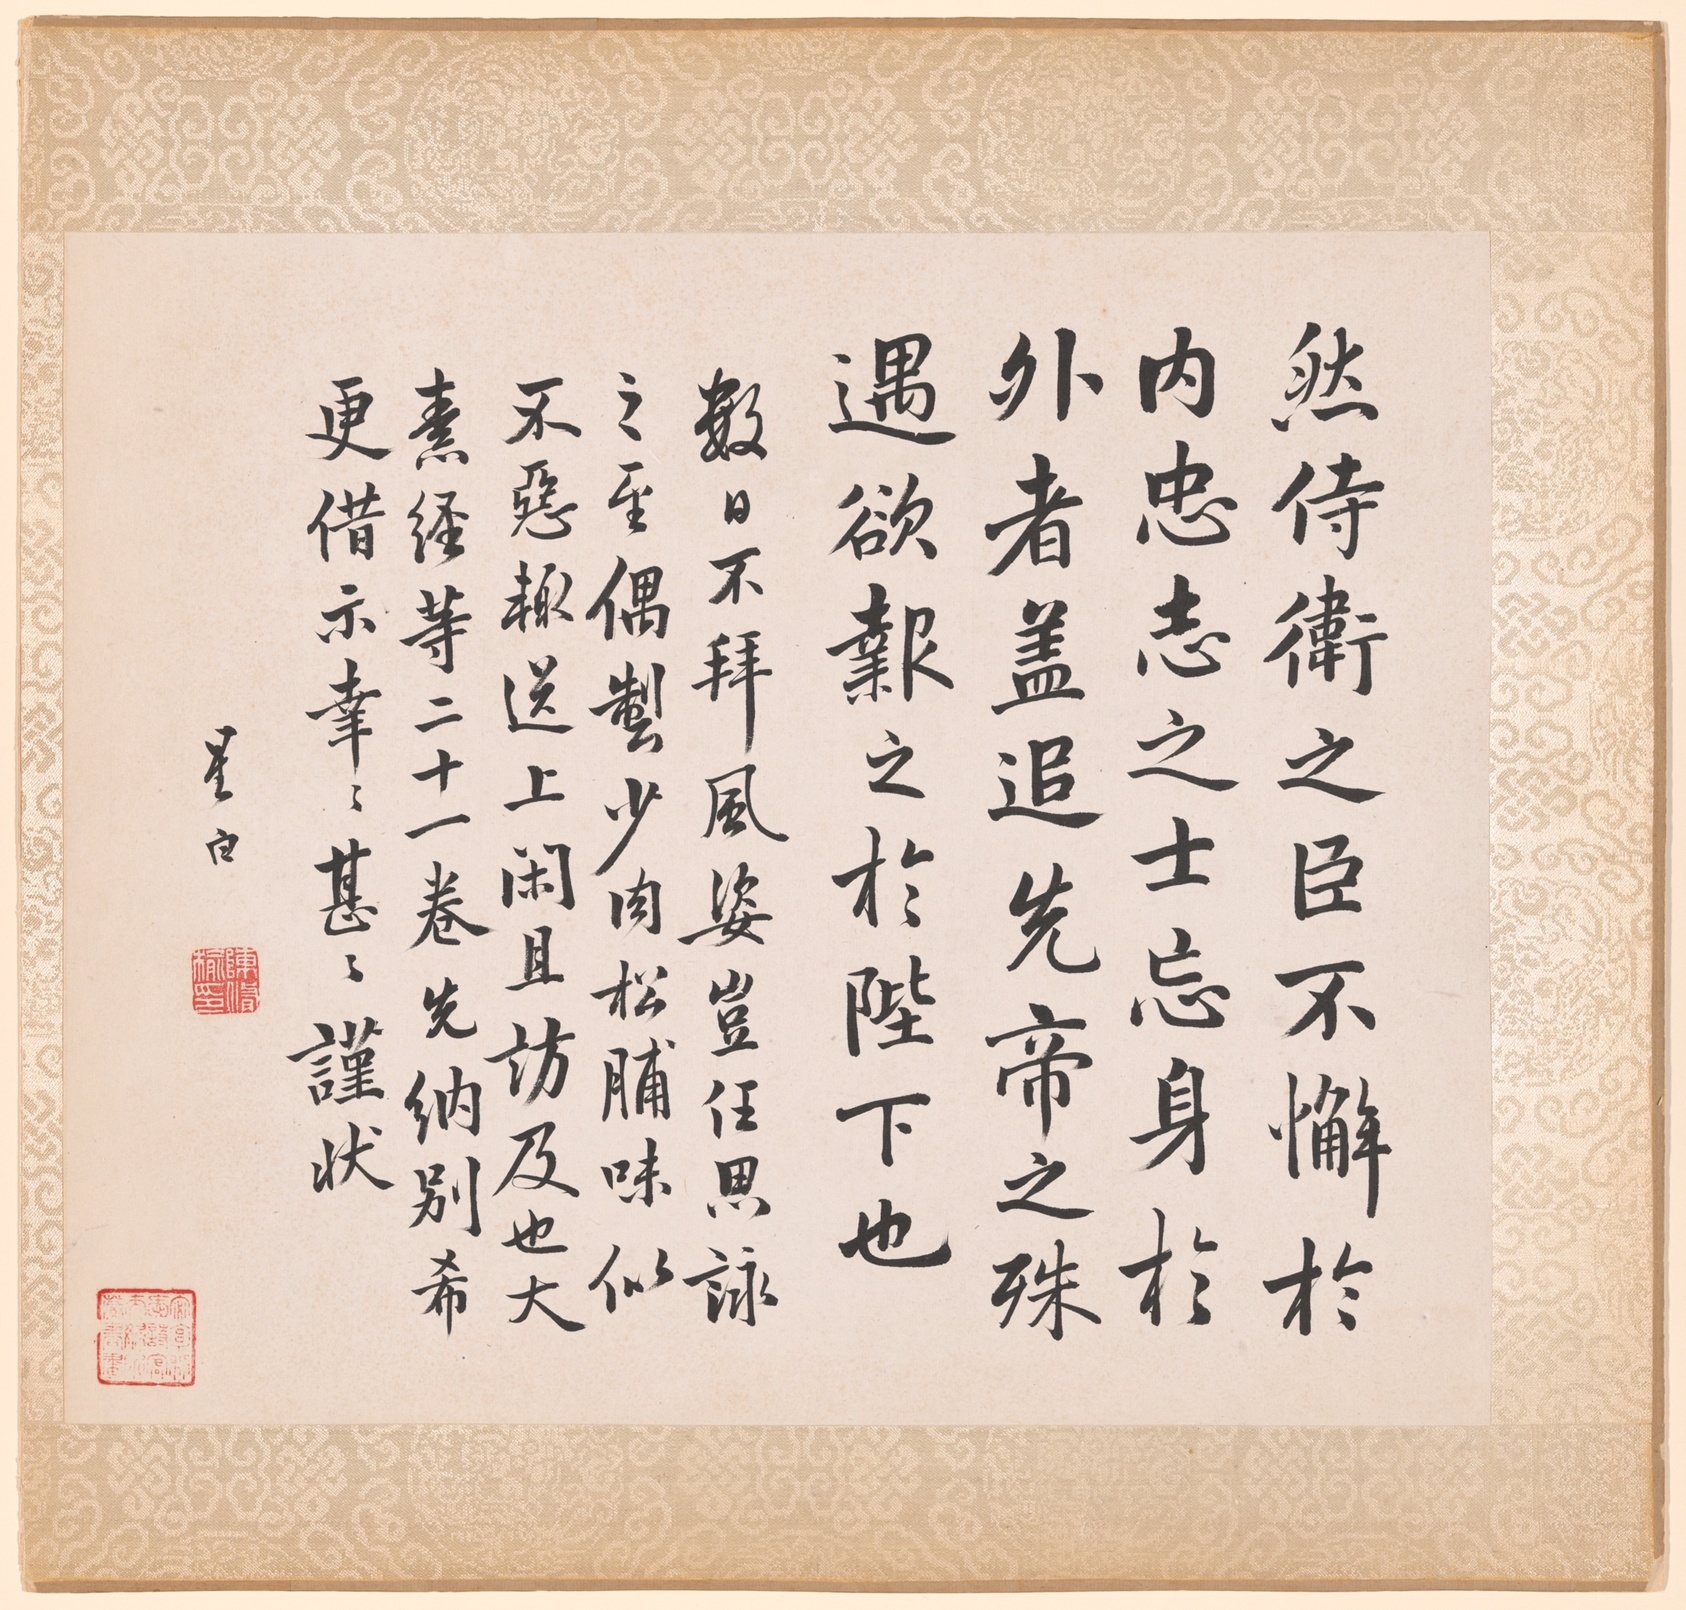 然侍衛之臣不懈於
内忠志之士忘身於
外者盖追先帝之殊
遇欲報之於陛下也
數日不拜風姿豈任思詠
之至偶製少肉松脯味似
不惡輙送上閑且訪及也大
素経等二十一卷先納別希
更借示幸〻甚〻謹状
星白